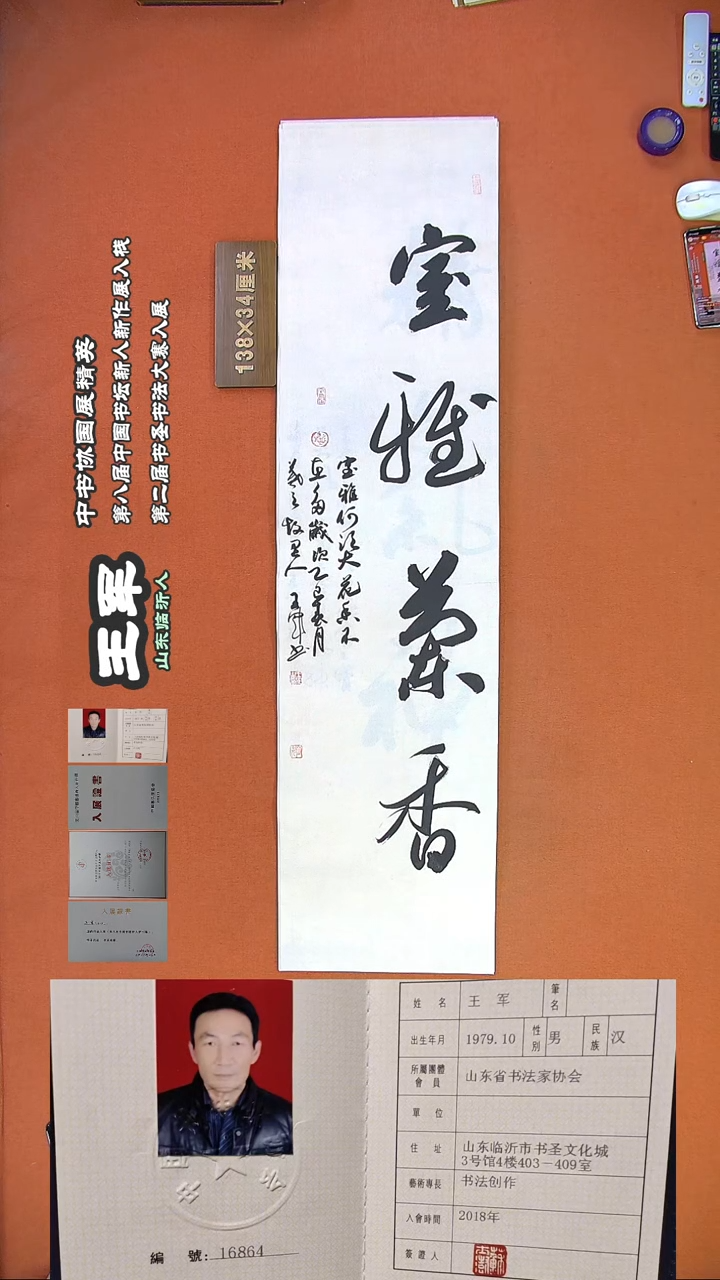 室雅兰香
室雅何须大花香不
在多岁次乙巳春月
羲之故里人王军书
138×34厘米
中书协国展精英
第八届中国书坛新人新作展入展
第二届书圣书法大赛入展
王军
山东临沂人
入展證書
姓 名 王 军 筆名
出生年月 1979.10 性別 男 民族 汉
所屬團體會員 山东省书法家协会
單 位
住 址 山东临沂市书圣文化城
3号馆4楼403-409室
藝術專長 书法创作
入會時間 2018年
簽證人
編 號:16864